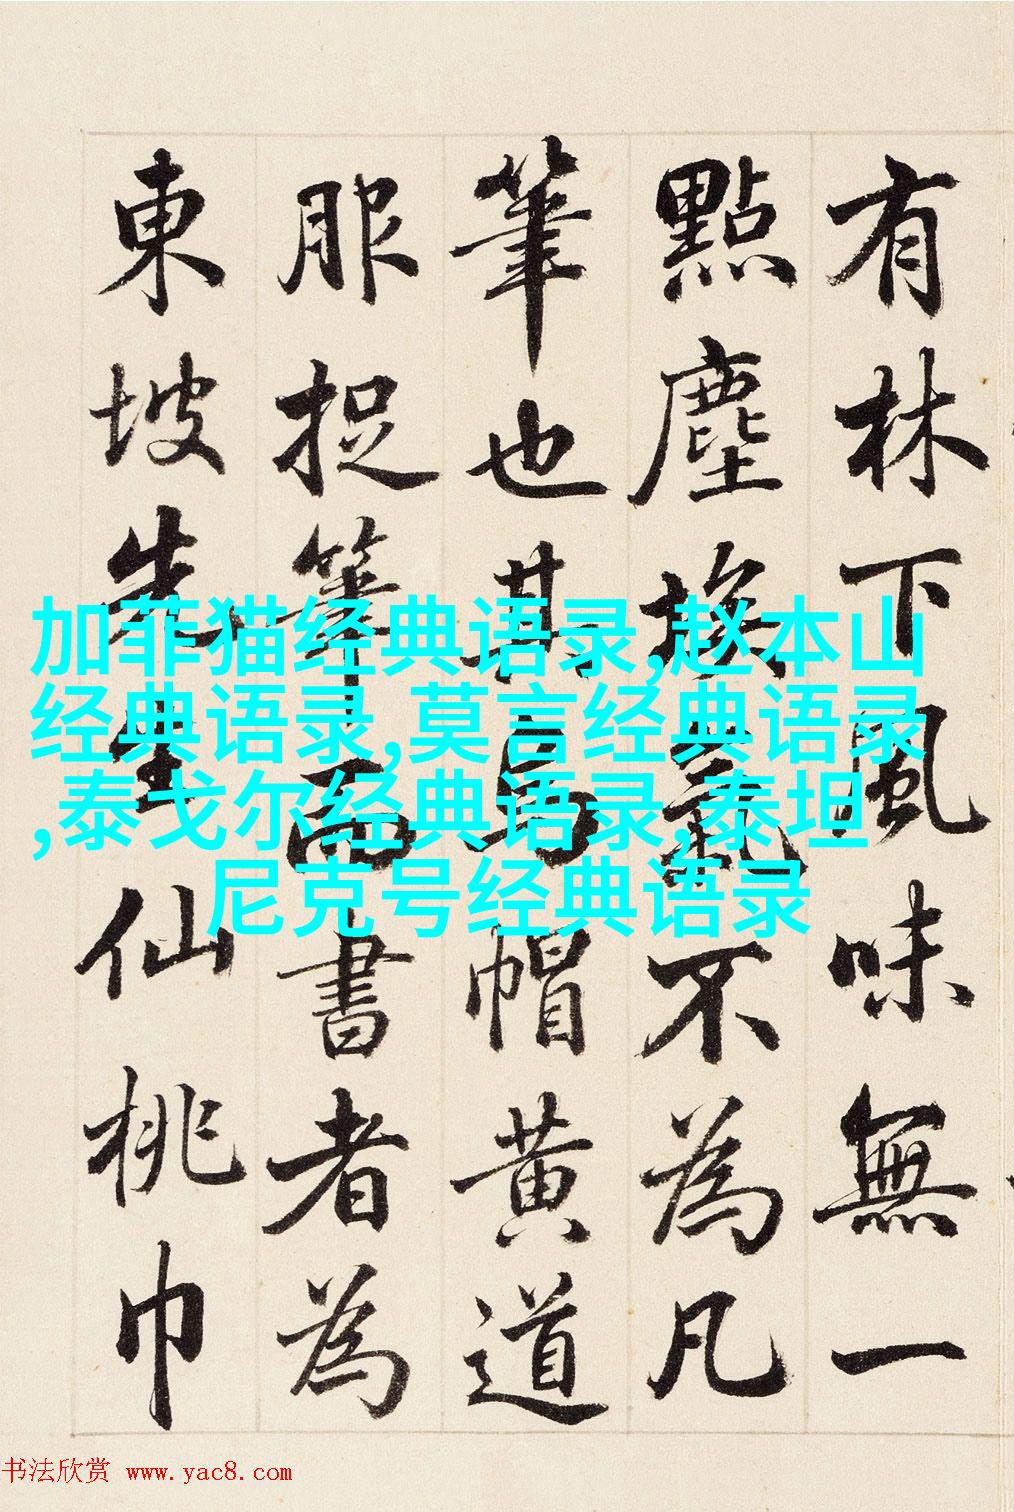 有林下風味無一
點塵埃氣不為凡
筆也其烏帽黃道
服捉筆而書者為
東坡先生仙桃巾
加菲猫经典语录,赵本山
经典语录,莫言经典语录
,泰戈尔经典语录,泰坦
尼克号经典语录
书法欣赏 www.yac8.com